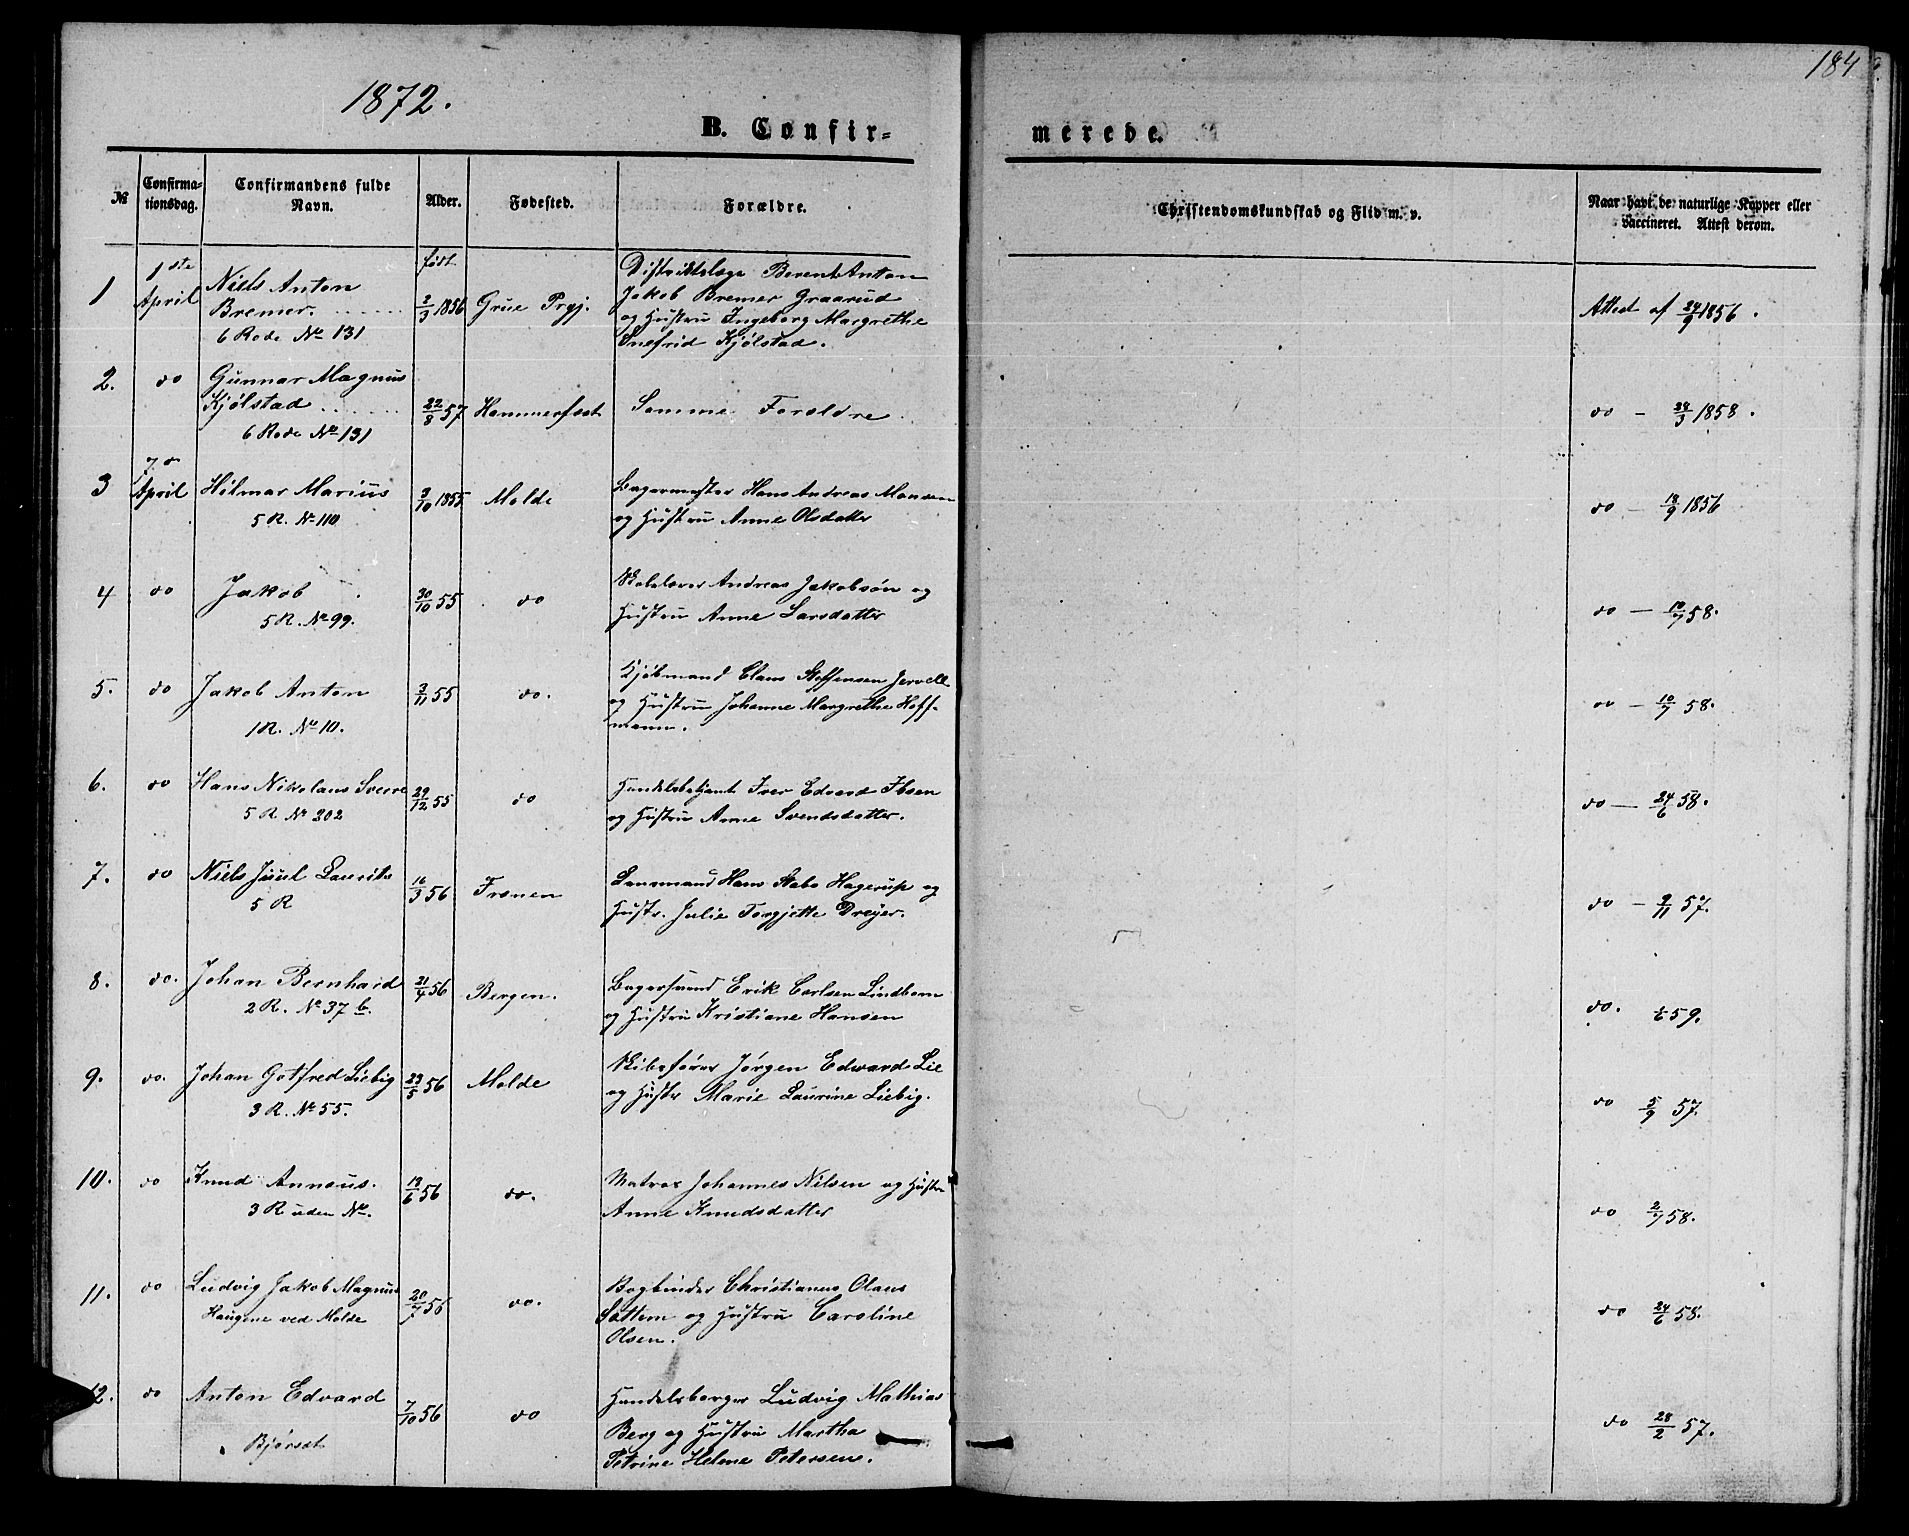 1872.
184
B. Confir-
merede.
No
Confirma-
tionsdag.
Confirmandens fulde
Navn.
Alder.
Fødested.
Forældre.
Christendomskundskab og Flid m. v.
Naar havt de naturlige Kopper eller
vaccineret. Attest derom.
1 1ste April Niels Anton født Distriktslæge Berent Anton
Bremer. 2/3 1856 Grue Prgj. Jakob Bremer Graarud Attest af 24/9 1856.
6 Rode No 131 og Hustru Ingeborg Margrethe
Snefrid Kjølstad.
2. do Gunnar Magnus
Kjølstad 22/8 57 Hammerfest Samme Forældre do - 24/3 1858.
6 Rode No 131
3 7de April Hilmar Marius 3/10 1855 Molde Bagermester Hans Andreas Monsen do - 18/9 1856
5 R. No 110 og Hustru Anne Olsdatter
4 do Jakob 30/10 55 do Andreas Jakobsøn og do - 10/7 58.
5 R. No 99. Hustru Anne Larsdatter
5. do Jakob Anton 3/11 55 do. Kjøbmand Claus Steffensen Jervell do - 10/7 58.
1 R. No 10. og Hustru Johanne Margrethe Hoff-
mann.
6. do Hans Nikolaus Sverre 29/12 55 do Handelsbetjent Iver Edvard Ibsen do - 24/6 58.
5 R No 202 og Hustru Anne Svendsdatter.
7. do Niels Juul Laurits 16/3 56 Frænen Lensmand Hans Stabo Hagerup og do - 9/11 57.
5 R Hustr. Julie Torgjette Dreyer.
8. do. Johan Bernhard 21/4 56 Bergen. Bagersvend Erik Carlsen Lindbom do. 59.
2 R. No 37 b. og Hustru Kristiane Hansen
9. do. Johan Gotfred Liebig 23/5 56 Molde Skibsfører Jørgen Edward Lie do 5/9 57.
3 R. No 55. og Hustr Marie Laurine Liebig.
10. do Knud Annæus. 13/6 56 do. Matros Johannes Nilsen og Hustru do 2/7 58.
3 R uden No. Anne Knudsdatter
11. do Ludvig Jakob Magnus 20/7 56 do. Bogbinder Christianus Olaus do 24/6 58.
Haugene ved Molde Sættem og Hustru Caroline
Olsen.
12. do Anton Edvard 7/10 56 do Handelsborger Ludvig Mathias do 28/2 57.
Bjørset Berg og Hustru Martha
Petrine Helene Petersene.